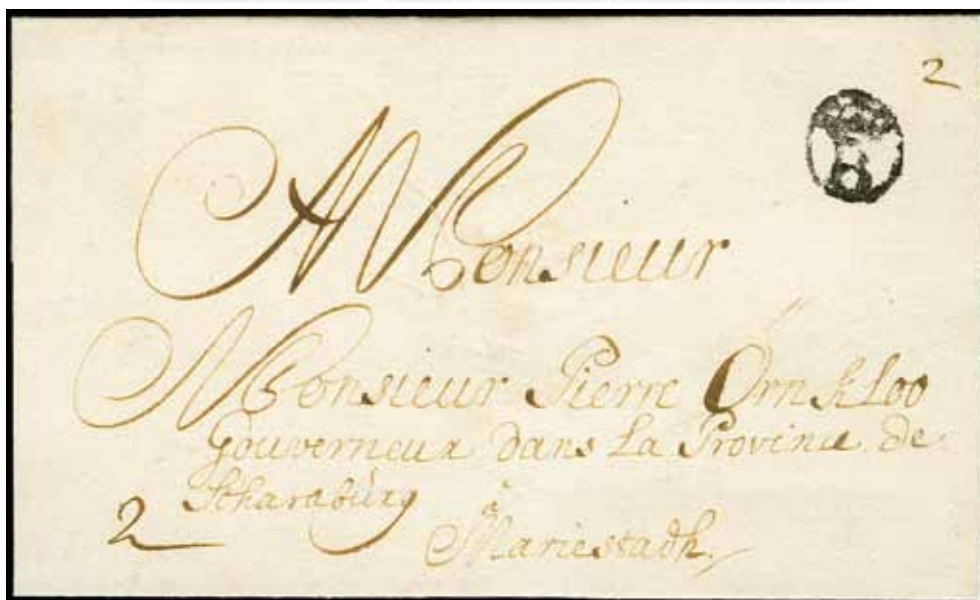 2
A Monsieur
Monsieur Pierre Örnkloo
Gouverneur dans La Province de
Skaraburg
2
à
Mariestadh.